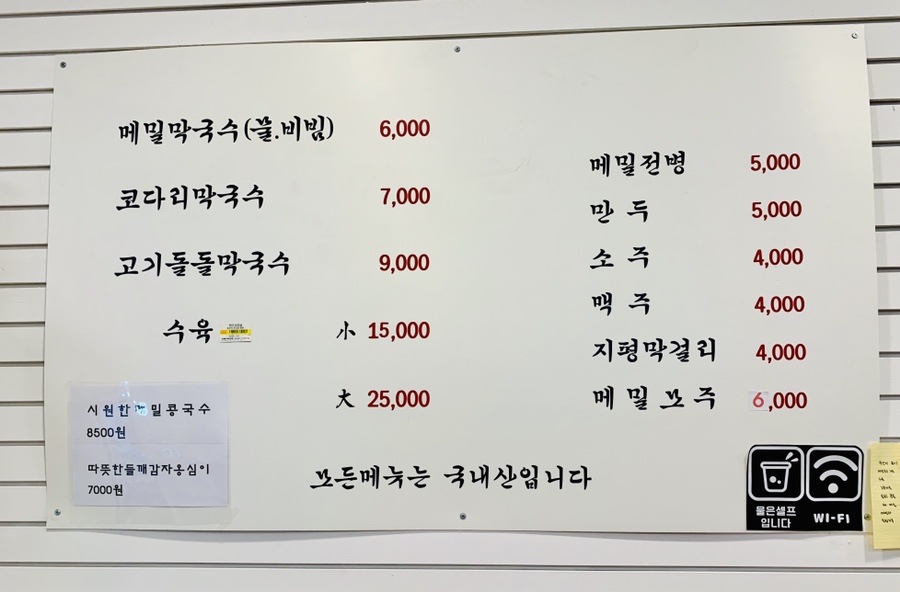 메밀막국수(물.비빔) 6,000
코다리막국수 7,000
고기돌돌막국수 9,000
수육 小 15,000
大 25,000
시원한메밀콩국수
8500원
따뜻한들깨감자옹심이
7000원
메밀전병 5,000
만두 5,000
소주 4,000
맥주 4,000
지평막걸리 4,000
메밀꼬주 6,000
모든메뉴는 국내산입니다
물은셀프
입니다
WI-FI